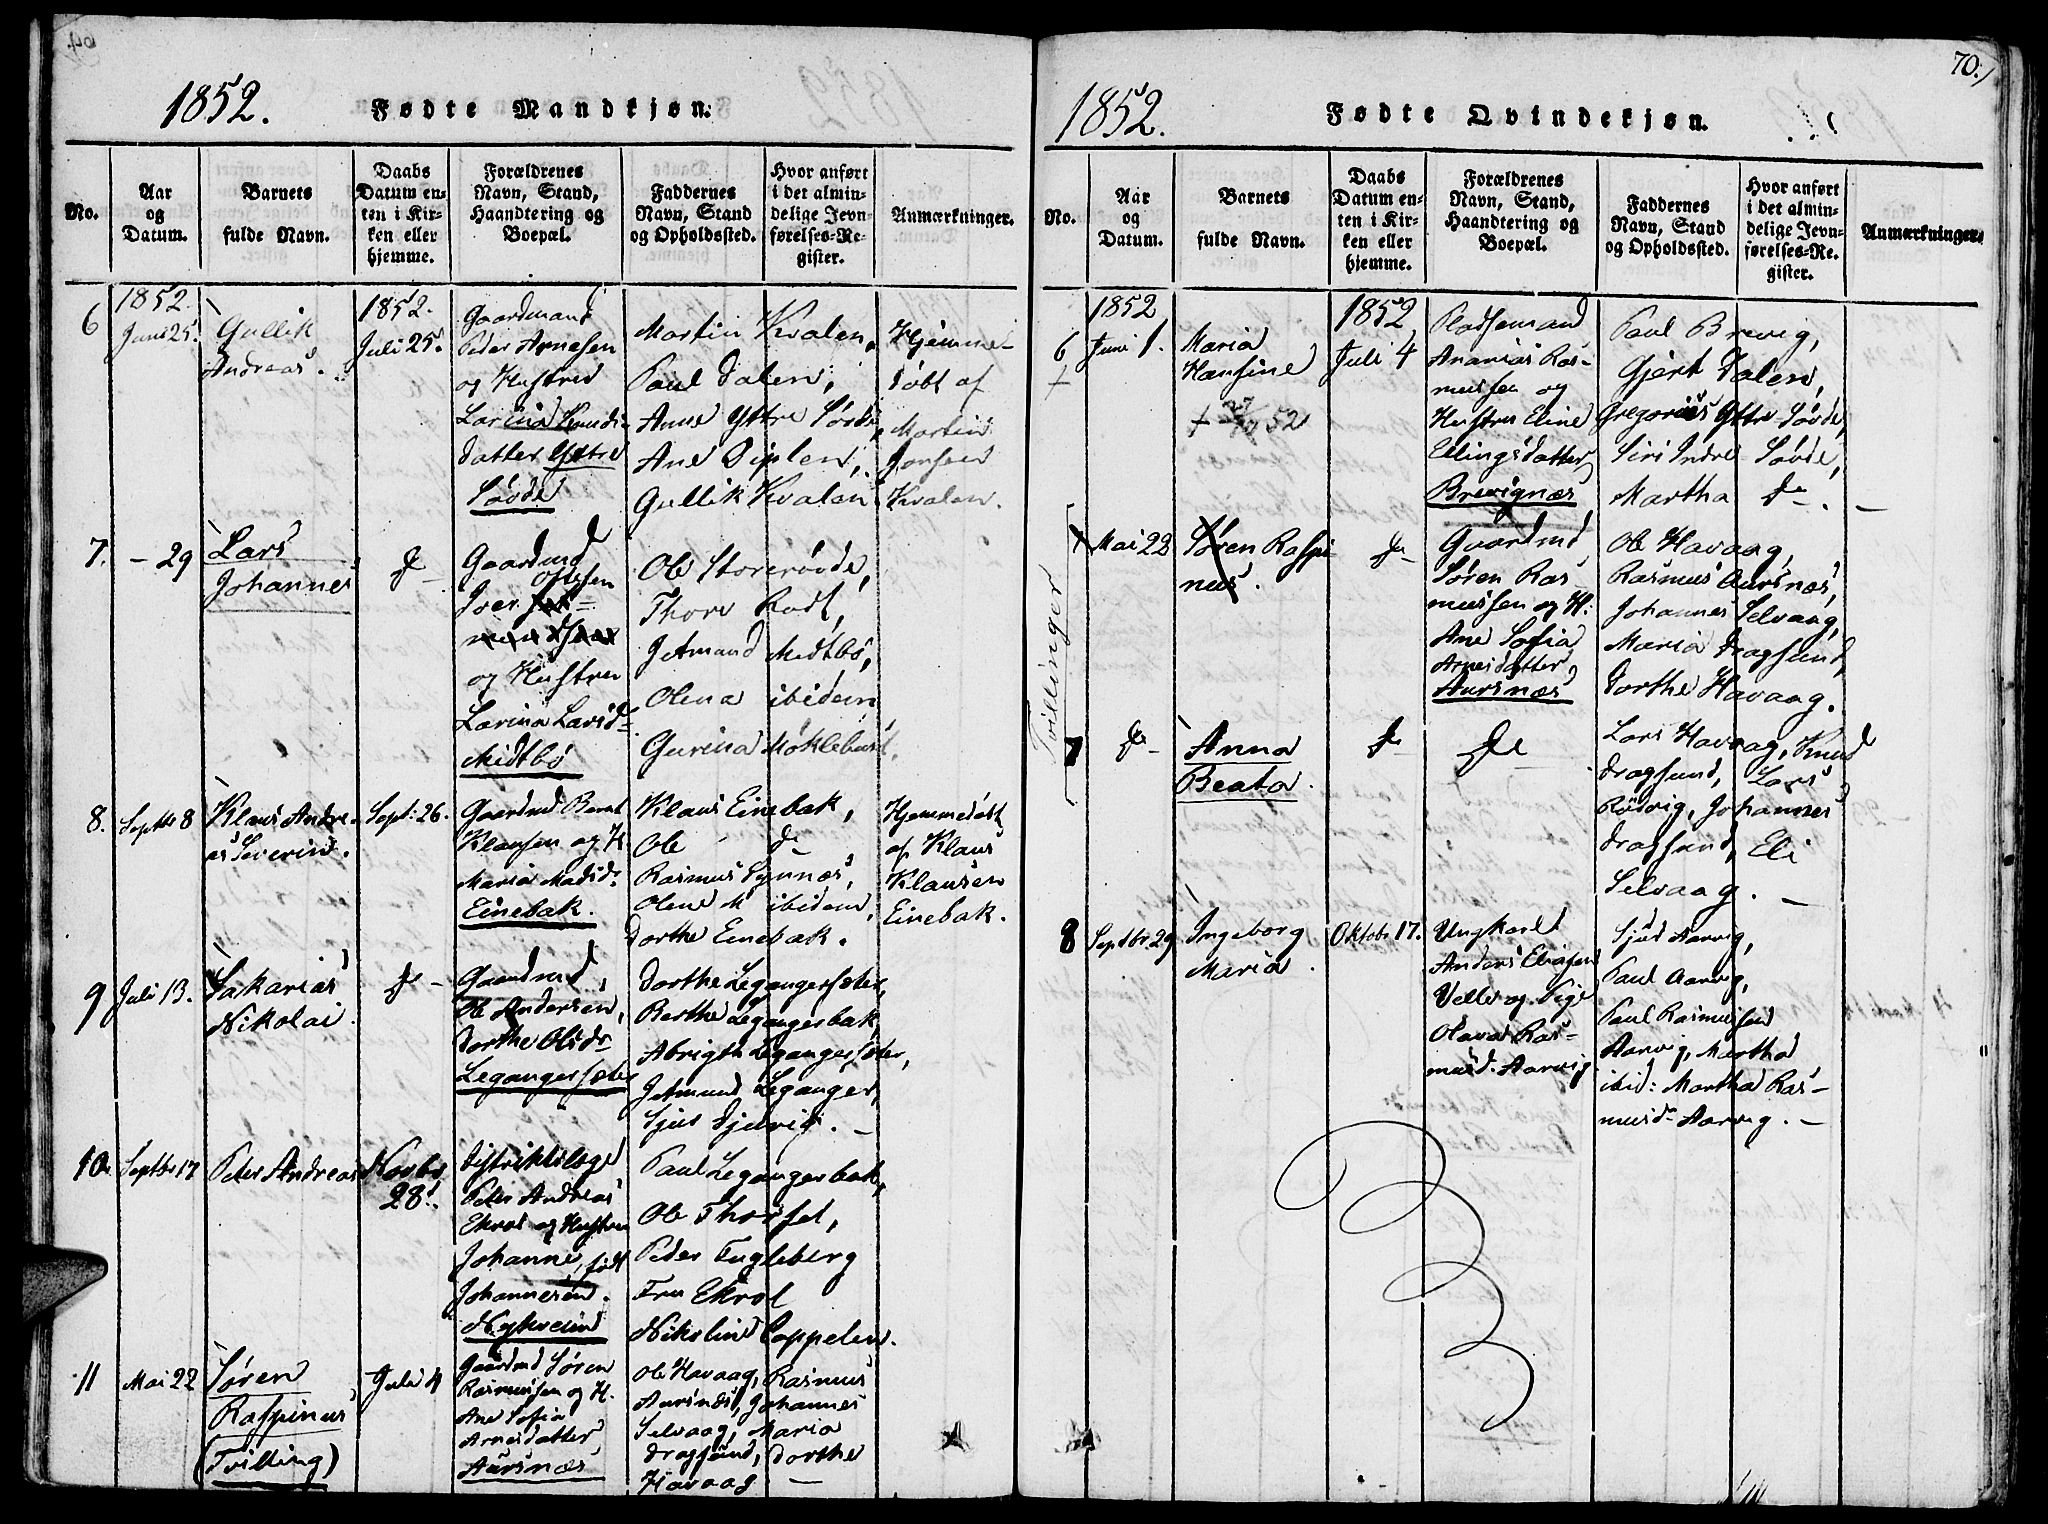 1852. Fødte Mandkjøn.
No.
Aar
og
Datum.
Barnets
fulde Navn.
Daabs
Datum en-
ten i Kir-
ken eller
hjemme.
Forældrenes
Navn, Stand,
Haandtering og
Boepæl.
Faddernes
Navn, Stand
og Opholdssted.
Hvor anført
i det almin-
delige Jevn-
førelses-Re-
gister.
Anmærkninger.
6
1852.
Juni 25.
Gullik
Andreas.
1852.
Juli 25.
Gaardmand
Peder Arnesen
og Hustru
Larina Knuds-
datter Yttre
Søvde
Martin Kvalen,
Paul Dalen,
Anne Yttre Søvde,
Ane Diplen,
Gullik Kvalen
Hjemme-
døbt af
Martin
Jonsen
Kvalen.
7.
- 29
Lars
Johannes
do -
Gaardmd
Iver Ottesen
og Hustru
Larina Larsd.
Midtbø
Ole Storesøvde,
Thore Rodt,
Jetmund Midtbø,
Olena ibidem
Gurina Møklebust.
8.
Septbr 8
Klaus Andre-
as Severin.
Sept: 26.
Gaardmd Bernt
Klausen og H.
Maria Madsdr
Einebak.
Klaus Einebak,
Ole do
Rasmus Synnæs,
Olene M ibidem,
Dorthe Einebak.
Hjemmedøbt
af Klaus
Klausen
Einebak.
9
Juli 13.
Sakarias
Nikolai
do -
Gaardmd,
Ole Andersen,
Dorthe Olsdr
Legangersæter
Dorthe Legangersæter,
Berthe Legangerbak,
Abrigth Legangersæter,
Jetmund Leganger,
Sjus Djuvig. -
10.
Septbr 17
Peter Andreas
Novbr
28.
Distriktslæge
Peter Andreas
Ekrol og Hustru
Johanne, født
Johannesen.
Nykreim
Paul Legangerbak,
Ole Thorset,
Peder Fugleberg
Fru Ekrol
Nikoline Cappelen.
11
Mai 22
Søren
Raspinus
(Tvilling)
Juli 4
Gaardmd Søren
Rasmussen og H.
Ane Sofia
Arnesdatter
Aursnæs
Ole Havaag, Rasmus
Aursnæs, Johannes
Selvaag, Maria
Dragsund, Dorthe
Havaag -
70.
1852. Fødte Qvindekjøn.
No.
Aar
og
Datum.
Barnets
fulde Navn.
Daabs
Datum en-
ten i Kir-
ken eller
hjemme.
Forældrenes
Navn, Stand,
Haandtering og
Boepæl.
Faddernes
Navn, Stand
og Opholdssted.
Hvor anført
i det almin-
delige Jevn-
førelses-Re-
gister.
Anmærkninger.
6
+
1852
Juni 1.
Maria
Hansine
52
1852
Juli 4
Pladsemand
Ananias Ras-
mussen og
Hustru Eline
Ellingsdatter
Brevignæs
Paul Brevig,
Gjert Dalen,
Gregorius Yttre Søvde,
Siri Indre Søvde,
Martha do. -
Tvillinger
Mai 22
Søren Raspi
nus.
do -
Gaardmd
Søren Ras-
mussen og H:
Ane Sofia
Arnesdatter
Aursnæs
Ole Havaag,
Rasmus Aursnæs,
Johannes Selvaag,
Maria Dragsund,
Dorthe Havaag.
7
do -
Anna
Beata.
do
do
Lars Havaag, Knud
Dragsund, Lars
Rødvig, Johannes
Dragsund, Eli
Selvaag. -
8
Septbr. 29
Ingeborg
Maria.
Oktobr 17.
Ungkarl
Anders Eliasen
Velle og Pige
Olava Ras-
musd. Aarvig
Sjud Aarvig,
Paul Aarvig,
Paul Rasmussen
Aarvig, Martha
ibid: Martha Ras-
musdr Aarvig. -